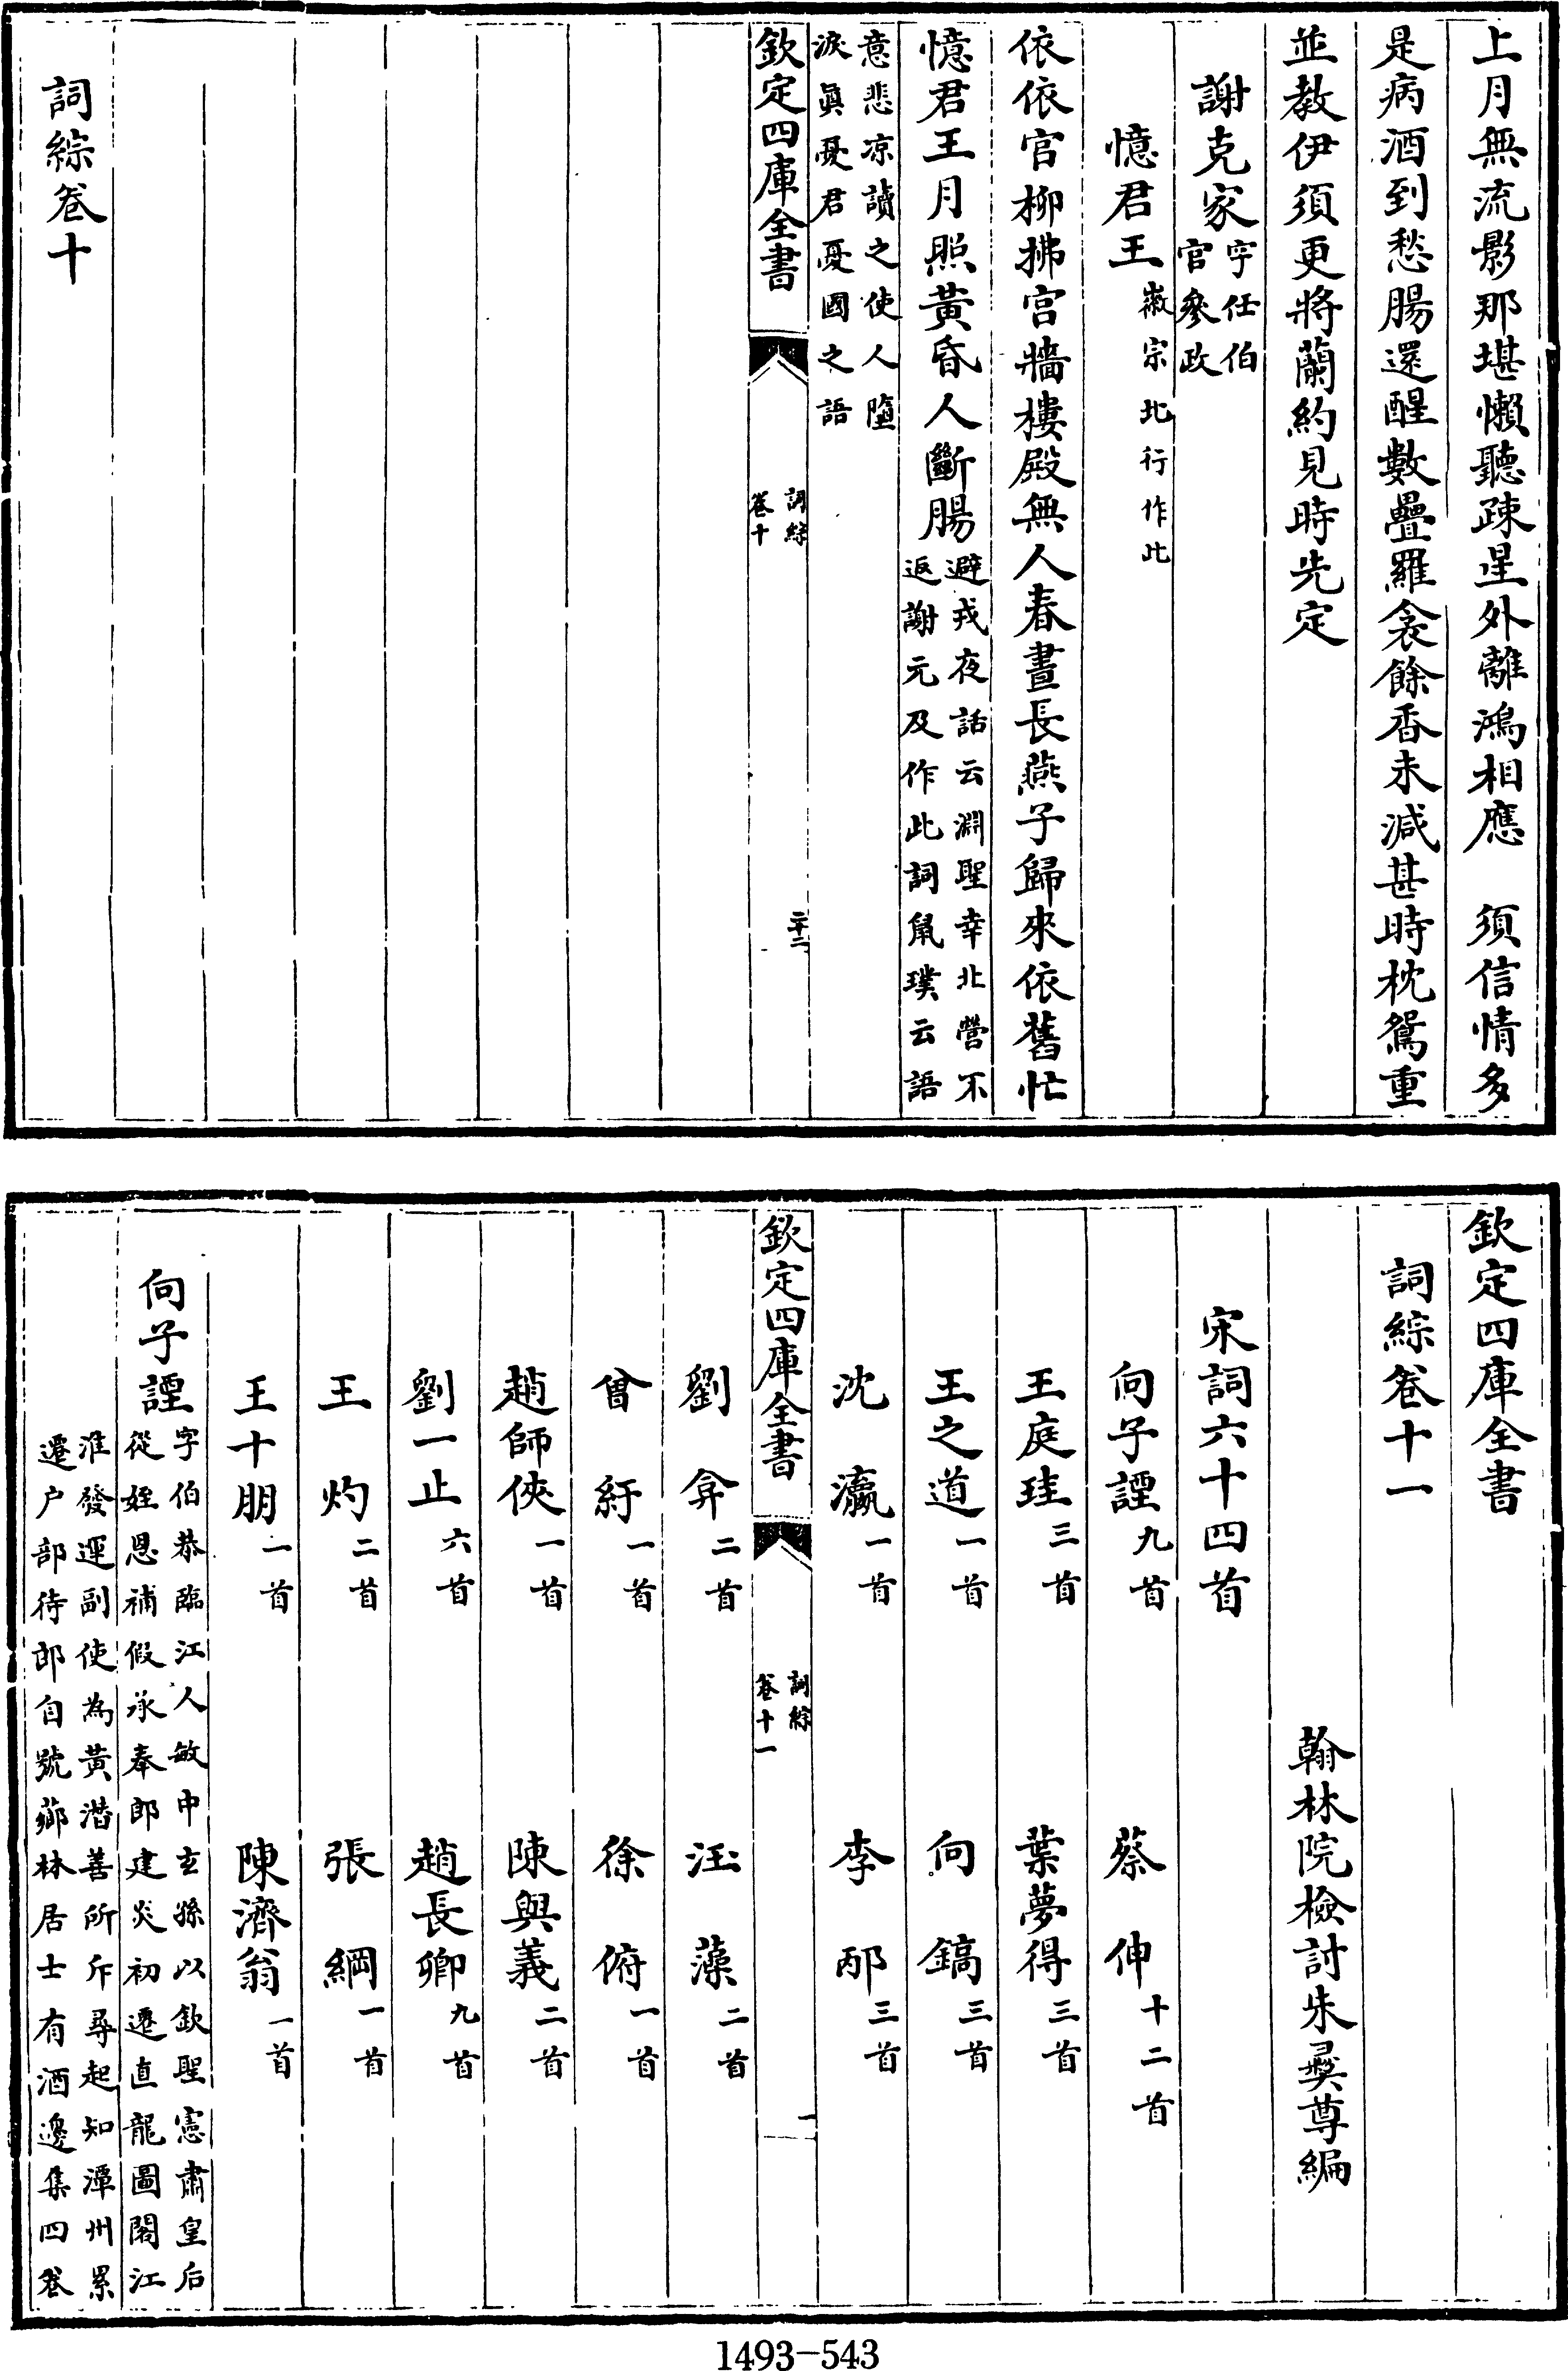 上月無流影那堪懶聽疎星外離鴻相應　須信情多
是病酒到愁腸還醒數疊羅衾餘香未減甚時枕鴛重
並教伊須更將蘭約見時先定
謝克家字任伯官參政
憶君王徽宗北行作此
依依官柳拂宫牆樓殿無人春晝長燕子歸來依舊忙
憶君王月照黃昏人斷腸避戎夜話云淵聖幸北營不返謝元及作此詞鼠璞云語
意悲凉讀之使人墮淚眞憂君憂國之語
欽定四庫全書
詞綜
卷十
二十二
詞綜卷十
欽定四庫全書
詞綜卷十一
翰林院檢討朱彛尊編
宋詞六十四首
向子諲九首　蔡　伸十二首
王庭珪三首　葉夢得三首
王之道一首　向　鎬三首
沈　瀛一首　李　邴三首
欽定四庫全書
詞綜
卷十一
一
劉　弇二首　汪　藻二首
曾　紆一首　徐　俯一首
趙師俠一首　陳與義二首
劉一止六首　趙長卿九首
王　灼二首　張　綱一首
王十朋一首　陳濟翁一首
向子諲字伯恭臨江人敏中玄孫以欽聖憲肅皇后從姪恩補假承奉郎建炎初遷直龍圖閣江
淮發運副使為黃潛善所斥尋起知潭州累遷户部侍郎自號薌林居士有酒邊集四卷
1493-543